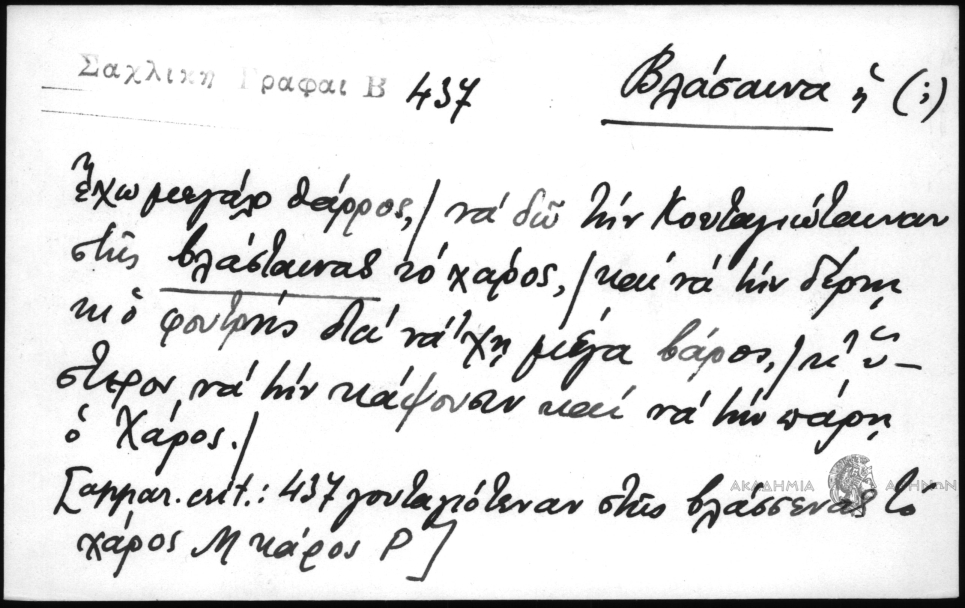 Σαχλίκη Γραφαι Β 437 Βλάσαινα ἡ (;)
Ἔχω μεγάλο θάρρος, / νά δῶ τήν Κουταγιώταιναν
στῆς βλάσταινας τό χάρος, / καί νά τήν δέρνῃ
κι ὁ φουρνῆς διά νά 'χῃ μέγα βάρος, / κ' ὕ-
στερον νά τήν κάψουσιν καί νά τήν πάρῃ
ὁ Χάρος. /
[appar. crit.: 437 γουταγιότεναν στῆς βλάσσενας τό
χάρος M κάρος P]
ΑΚΑΔΗΜΙΑ ΑΘΗΝΩΝ